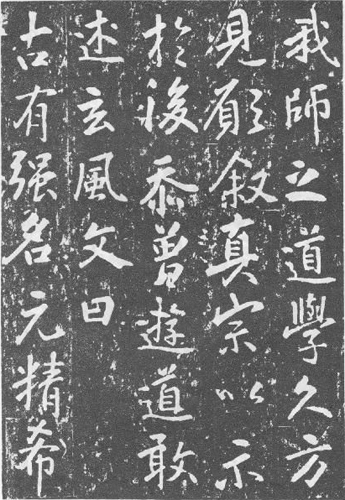 我師之道學久方
見願叙真宗以示
於後忝曽遊道敢
述玄風文曰
古有强名元精希